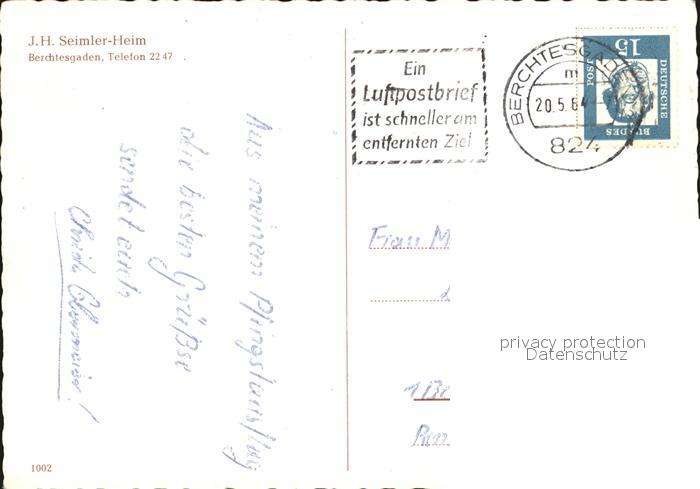 J.H. Seimler-Heim
Berchtesgaden, Telefon 22 47
Aus meinem Pfingstausflug
die besten Grüße
sendet euch
1002
Ein
Luftpostbrief
ist schneller am
entfernten Ziel
BERCHTESGADEN
m
20.5.64
824
15
DEUTSCHE
BUNDES
POST
Frau M
1 Be
privacy protection
Datenschutz